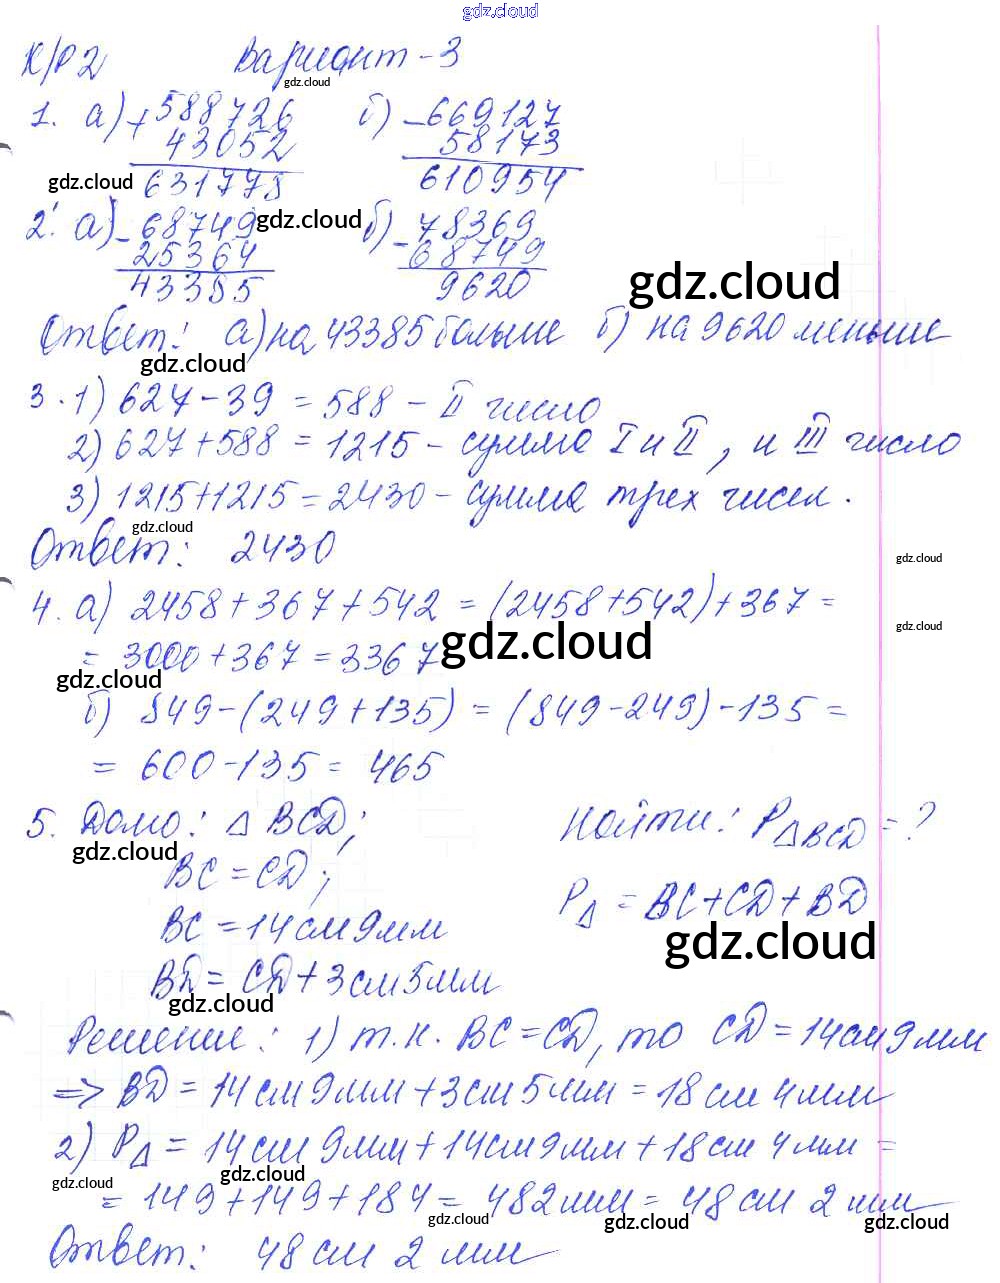 gdz.cloud
К/Р 2 Вариант-3
gdz.cloud
1. а) + 588726 б) - 669127
43052 58173
gdz.cloud 631778 610954
2. а) - 68749 gdz.cloud б) - 78369
25364 68749
43385 9620 gdz.cloud
Ответ: а) на 43385 больше б) на 9620 меньше
gdz.cloud
3. 1) 627 - 39 = 588 - II число
2) 627 + 588 = 1215 - сумма I и II, и III число
3) 1215 + 1215 = 2430 - сумма трех чисел.
gdz.cloud
Ответ: 2430
gdz.cloud
4. а) 2458 + 367 + 542 = (2458 + 542) + 367 =
gdz.cloud
= 3000 + 367 = 3367 gdz.cloud
gdz.cloud
б) 849 - (249 + 135) = (849 - 249) - 135 =
= 600 - 135 = 465
5. Дано: △ BCD; Найти: P△BCD = ?
gdz.cloud
BC = CD;
BC = 14 см 9 мм P△ = BC + CD + BD
gdz.cloud
BD = CD + 3 см 5 мм
gdz.cloud
Решение: 1) т.к. BC = CD, то CD = 14 см 9 мм
=> BD = 14 см 9 мм + 3 см 5 мм = 18 см 4 мм
2) P△ = 14 см 9 мм + 14 см 9 мм + 18 см 4 мм =
gdz.cloud gdz.cloud
= 149 + 149 + 184 = 482 мм = 48 см 2 мм
gdz.cloud gdz.cloud gdz.cloud
Ответ: 48 см 2 мм